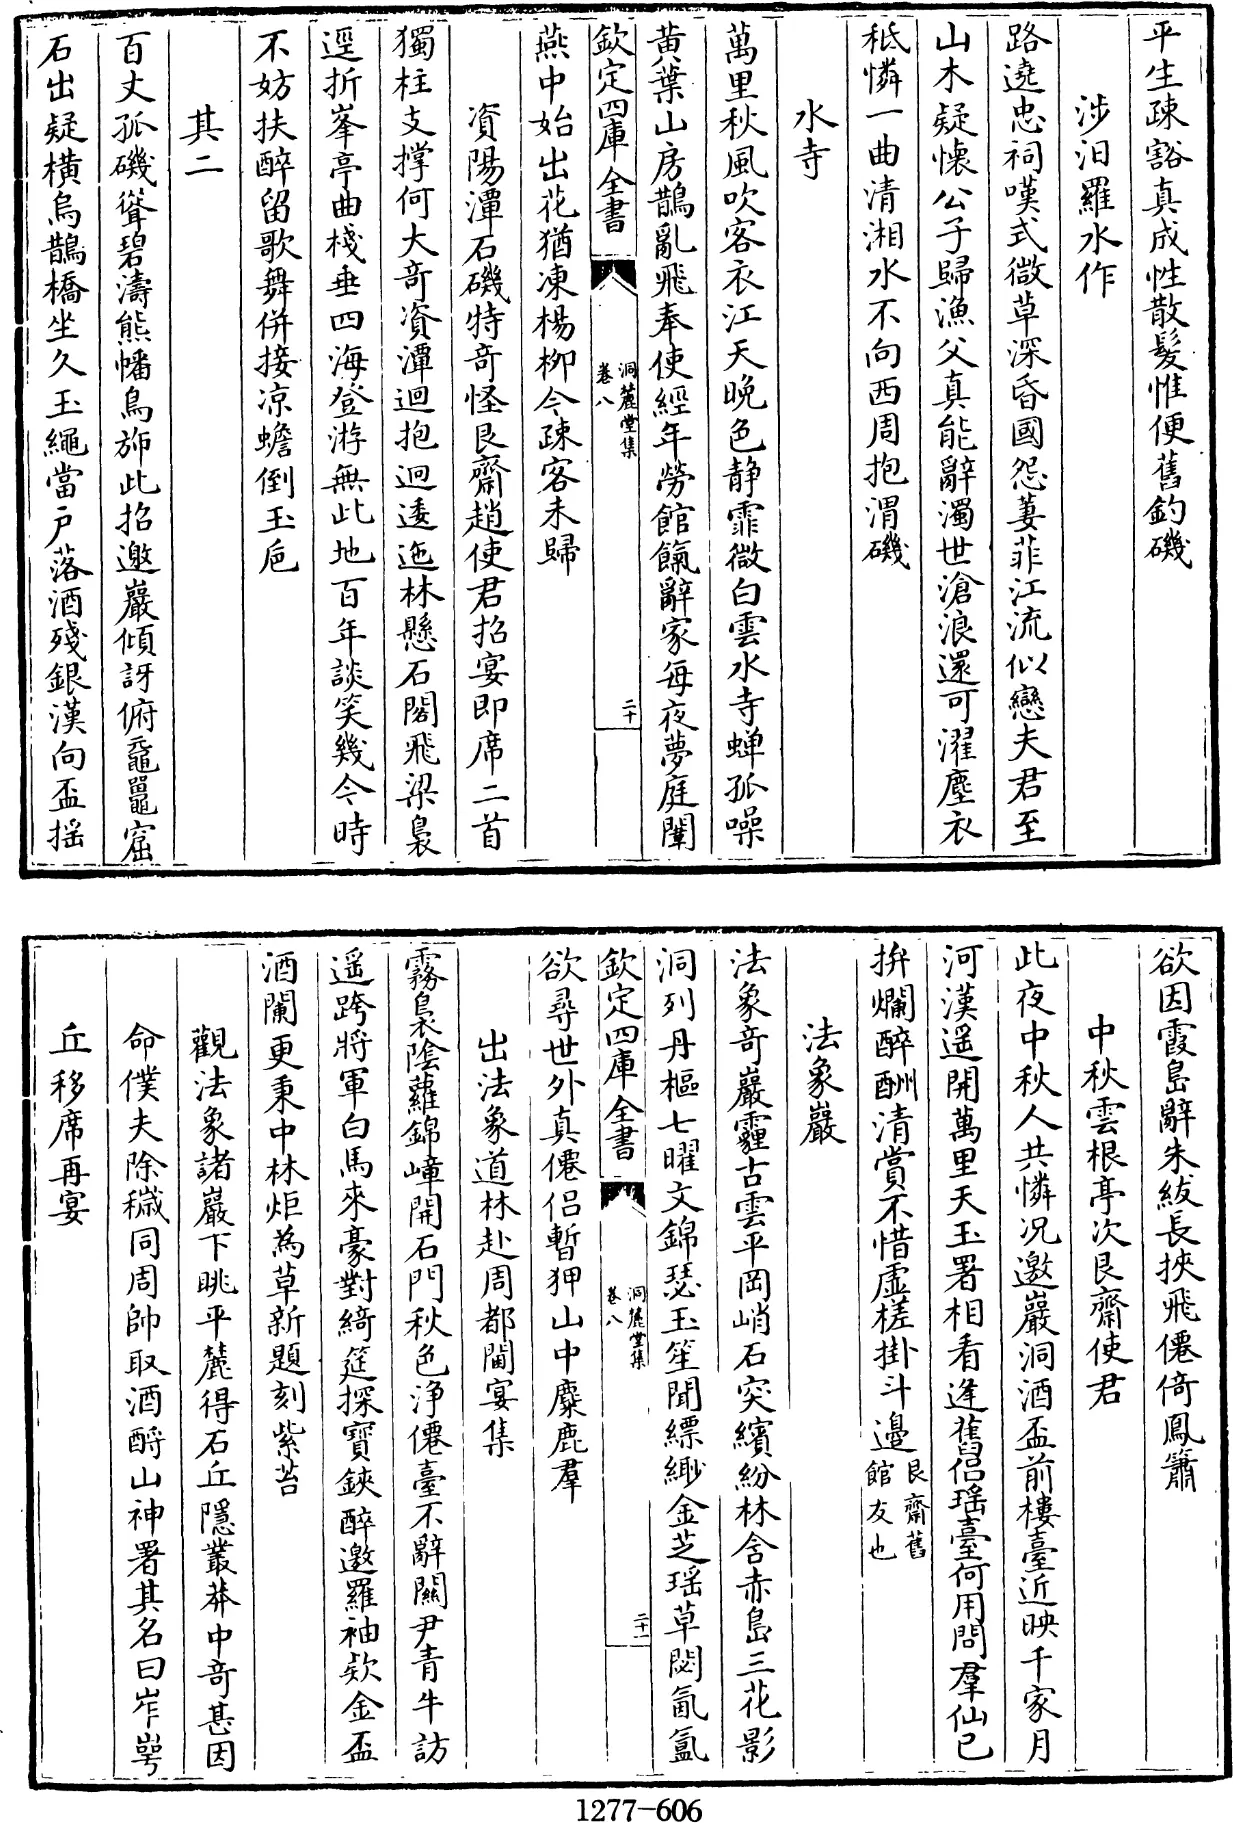 平生疎豁真成性散髮惟便舊釣磯
涉汨羅水作
路遶忠祠嘆式微草深昏國怨萋菲江流似戀夫君至
山木疑懷公子歸漁父真能辭濁世滄浪還可濯塵衣
秪憐一曲清湘水不向西周抱渭磯
水寺
萬里秋風吹客衣江天晚色静霏微白雲水寺蝉孤噪
黄葉山房鵲亂飛奉使經年勞館餼辭家每夜夢庭闈
欽定四庫全書
洞麓堂集
卷八
二十
燕中始出花猶凍楊柳今疎客未歸
資陽潭石磯特奇怪艮齋趙使君招宴即席二首
獨柱支撑何大竒資潭迴抱迥逶迤林懸石閣飛梁裊
逕折峯亭曲棧垂四海登游無此地百年談笑幾今時
不妨扶醉留歌舞併接凉蟾倒玉巵
其二
百丈孤磯聳碧濤熊幡鳥斾此招邀巖傾訝俯黿鼉窟
石出疑横烏鵲橋坐久玉繩當户落酒殘銀漢向盃摇
欲因霞島辭朱紱長挾飛僊倚鳳簫
中秋雲根亭次艮齋使君
此夜中秋人共憐况邀巖洞酒盃前樓臺近映千家月
河漢遥開萬里天玉署相看逢舊侣瑶臺何用問羣仙已
拚爛醉酬清賞不惜虚槎掛斗邉艮齋舊館友也
法象巖
法象竒巖霾古雲平岡峭石突繽紛林含赤島三花影
洞列丹樞七曜文錦瑟玉笙聞縹緲金芝瑶草閟氤氲
欽定四庫全書
洞麓堂集
卷八
二十一
欲尋世外真僊侣暫狎山中麋鹿羣
出法象道林赴周都閫宴集
霧裊陰蘿錦嶂開石門秋色浄僊臺不辭關尹青牛訪
遥跨將軍白馬來豪對綺筵探寳鋏醉邀羅袖欵金盃
酒闌更秉中林炬為草新題刻紫苔
觀法象諸巖下眺平麓得石丘隱叢莽中竒甚因
命僕夫除穢同周帥取酒酹山神署其名曰岝崿
丘移席再宴
1277-606